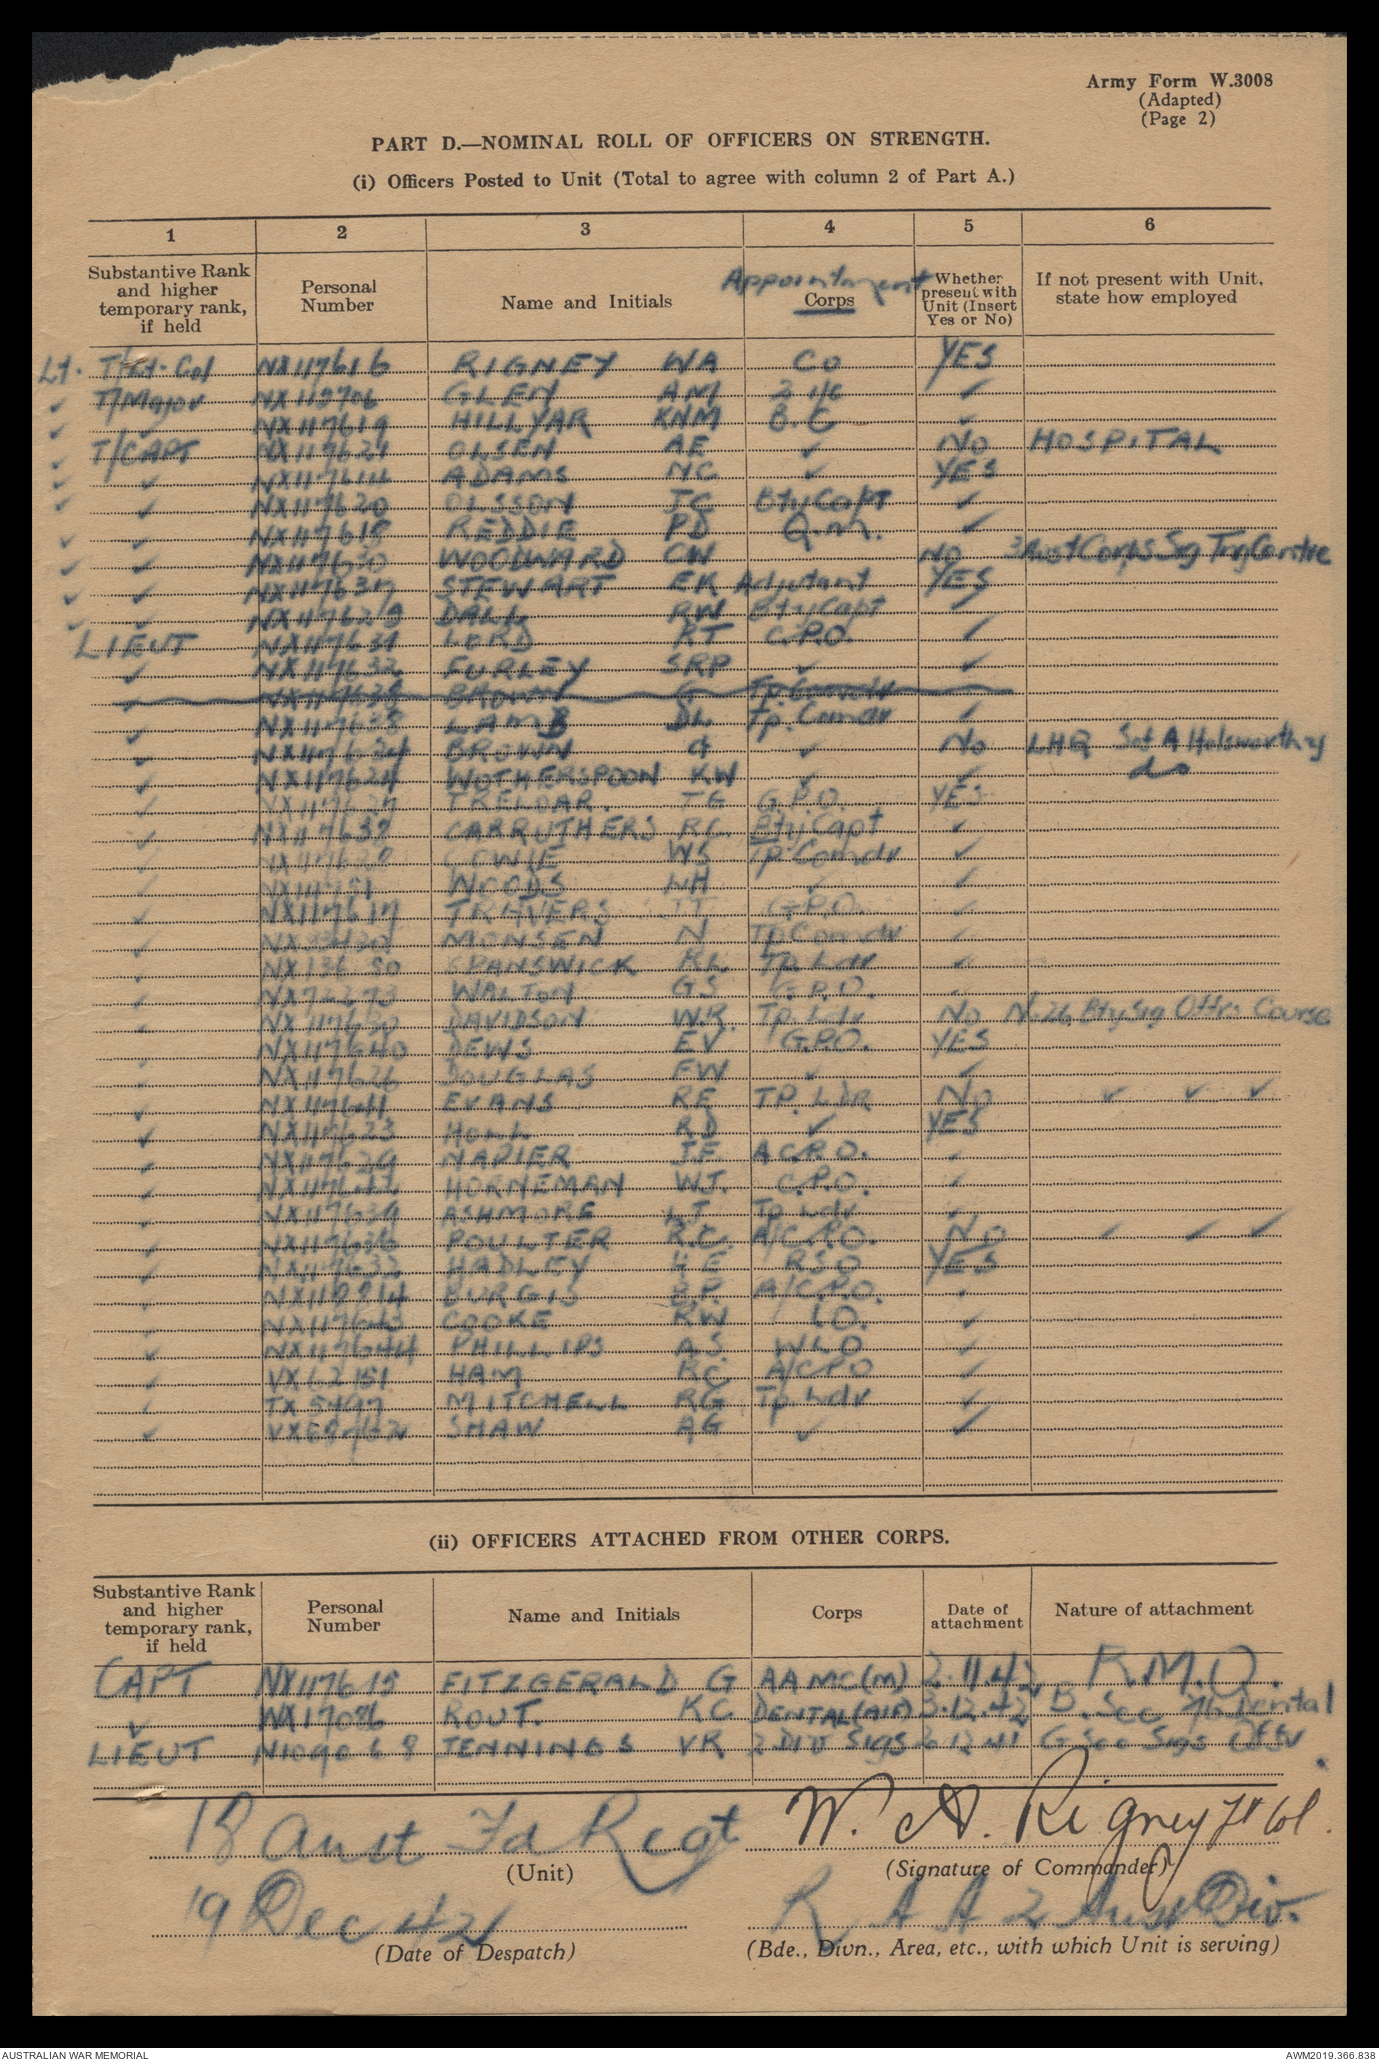 Army Form W.3008
(Adapted)
(Page 2)
PART D.—NOMINAL ROLL OF OFFICERS ON STRENGTH.
(i) Officers Posted to Unit (Total to agree with column 2 of Part A.)
1 2 3 4 5 6
Substantive Rank and higher temporary rank, if held Personal Number Name and Initials Appointment Corps Whether present with Unit (Insert Yes or No) If not present with Unit, state how employed
Lt. T/Lt-Col NX117616 RIGNEY WA CO YES
✓ T/Major NX112706 GLEN AM 2 I/C ✓
✓ ✓ NX117619 HILLYAR KNM B.C ✓
✓ T/CAPT NX117621 OLSEN AE ✓ NO HOSPITAL
✓ ✓ NX117614 ADAMS NC ✓ YES
✓ ✓ NX117620 OLSSON JC Bty Capt ✓
✓ ✓ NX117618 REDDIE PD Q.M. ✓
✓ ✓ NX117630 WOODWARD CW NO Aust Corps Sig Trng Centre
✓ ✓ NX117637 STEWART EK Adjutant YES
✓ ✓ DALL RW Bty Capt ✓
LIEUT NX117631 LORD RT C.P.O. ✓
✓ NX117632 FURLEY SRP ✓ ✓
✓ G Tp. Comdr
✓ NX117638 LAMB DL Tp. Comdr ✓
✓ BROWN G ✓ NO LHQ Holsworthy
✓ WOTHERSPOON KW ✓ ✓ do
✓ TRELOAR. TG G.P.O. YES
✓ CARRUTHERS RC Bty Capt ✓
✓ COWIE WS Tp Comdr ✓
✓ WOODS ✓ ✓
✓ NX117617 TRAVERS G.P.O. ✓
✓ MONSEN N Tp Comdr ✓
✓ SPANSWICK RL Tp. Ldr ✓
✓ WALTON GS G.P.O. ✓
✓ DAVIDSON W.R. Tp. Ldr NO No. 26 Bty Sig Offrs Course
✓ NX117640 DEWS EV G.P.O. YES
✓ NX117626 DOUGLAS EW ✓ ✓
✓ NX117641 EVANS RE TP. LDR NO ✓ ✓ ✓
✓ NX117623 HOLL RD ✓ YES
✓ NX117629 NAPIER JE A.C.P.O. ✓
✓ HORNEMAN WJ. C.P.O. ✓
✓ NX117639 ASHMORE Tp Ldr ✓
✓ POULTER R.C. A/C.P.O. NO ✓ ✓ ✓
✓ HADLEY HE RSO YES
✓ BURGIS B.P. A/C.P.O. ✓
✓ NX117643 COOKE RW LO. ✓
✓ NX117644 PHILLIPS A.S. WLO ✓
✓ VX62151 HAM RC A/CPO ✓
✓ TX5497 MITCHELL RG Tp Ldr ✓
✓ SHAW AG ✓ ✓
(ii) OFFICERS ATTACHED FROM OTHER CORPS.
Substantive Rank and higher temporary rank, if held Personal Number Name and Initials Corps Date of attachment Nature of attachment
CAPT NX117615 FITZGERALD G AAMC(M) 2.11.42 R.M.O.
✓ NX17086 ROUT. KC DENTAL(AIF) 3.12.42 Sec 76 Dental
LIEUT N109068 JENNINGS VR 2 DIV SIGS G Sec Sigs
18 Aust Fd Regt W. A. Rigney Lt Col.
(Unit) (Signature of Commander)
19 Dec 42 R A A 2 Aust Div.
(Date of Despatch) (Bde., Divn., Area, etc., with which Unit is serving)
AUSTRALIAN WAR MEMORIAL AWM2019.366.838